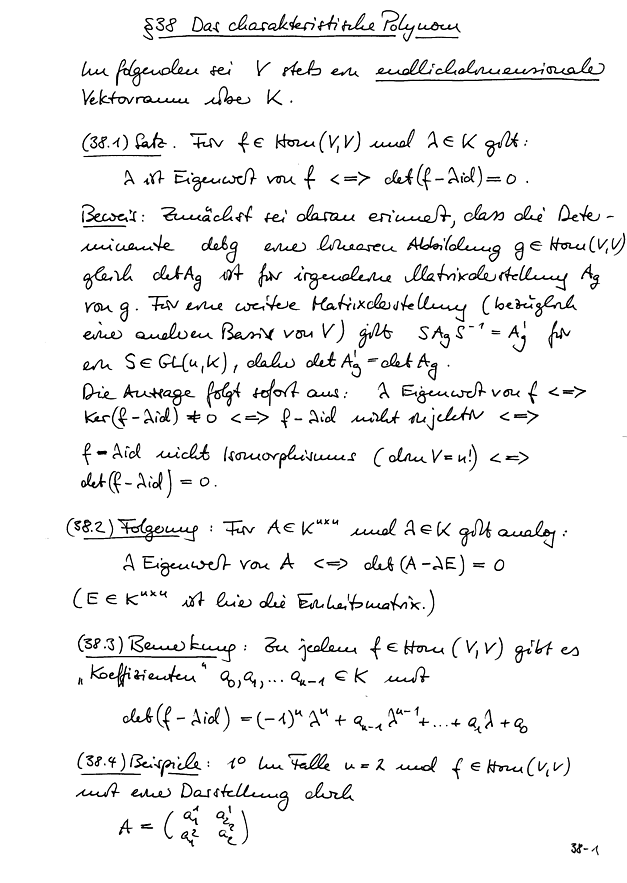 §38 Das charakteristische Polynom
Im folgenden sei V stets ein endlichdimensionale
Vektorraum über K.
(38.1) Satz. Für f ∈ Hom(V,V) und λ ∈ K gilt:
λ ist Eigenwert von f <=> det(f-λid)=0.
Beweis: Zunächst sei daran erinnert, dass die Dete-
minante det g eine linearen Abbildung g ∈ Hom(V,V)
gleich det Ag ist für irgendeine Matrixdarstellung Ag
von g. Für eine weitere Matrixdarstellung (bezüglich
eine anderen Basis von V) gilt S Ag S⁻¹ = A'g für
ein S ∈ GL(n,K), daher det A'g = det Ag.
Die Aussage folgt sofort aus: λ Eigenwert von f <=>
Ker(f-λid) ≠ 0 <=> f-λid nicht injektiv <=>
f-λid nicht Isomorphismus (dim V=n!) <=>
det(f-λid) = 0.
(38.2) Folgerung: Für A ∈ Kⁿˣⁿ und λ ∈ K gilt analog:
λ Eigenwert von A <=> det(A-λE) = 0
(E ∈ Kⁿˣⁿ ist hie die Einheitsmatrix.)
(38.3) Bemerkung: Zu jedem f ∈ Hom(V,V) gibt es
„Koeffizienten" a₀, a₁, ... aₙ₋₁ ∈ K mit
det(f-λid) = (-1)ⁿ λⁿ + aₙ₋₁ λⁿ⁻¹ + ... + a₁λ + a₀
(38.4) Beispiele: 1° Im Falle n=2 und f ∈ Hom(V,V)
mit eine Darstellung durch
A = ( a₁¹ a₂¹
a₁² a₂² )
38-1